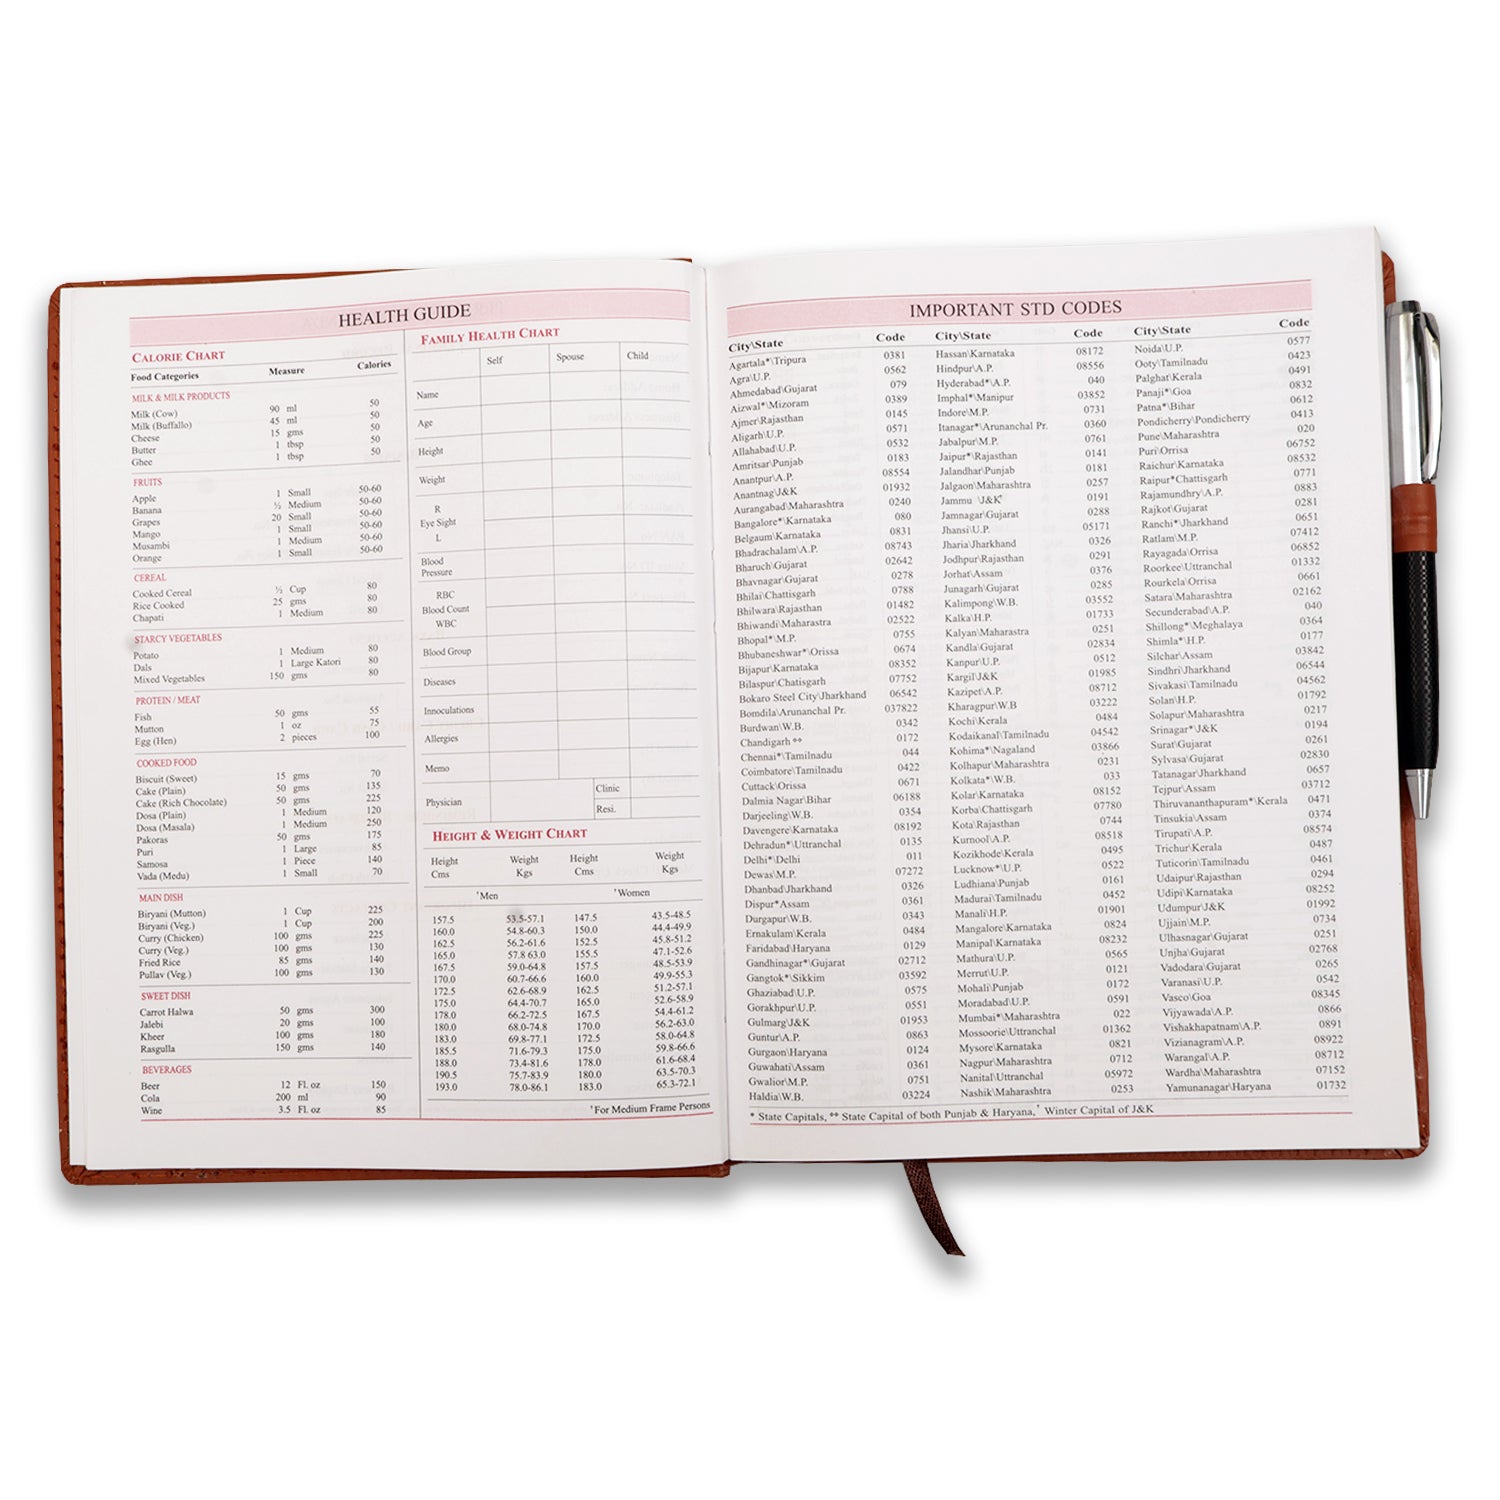 HEALTH GUIDE
CALORIE CHART
Food Categories Measure Calories
MILK & MILK PRODUCTS
Milk (Cow) 90 ml 50
Milk (Buffallo) 45 ml 50
Cheese 15 gms 50
Butter 1 tbsp 50
Ghee 1 tbsp 50
FRUITS
Apple 1 Small 50-60
Banana ½ Medium 50-60
Grapes 20 Small 50-60
Mango 1 Small 50-60
Musambi 1 Medium 50-60
Orange 1 Small 50-60
CEREAL
Cooked Cereal ½ Cup 80
Rice Cooked 25 gms 80
Chapati 1 Medium 80
STARCY VEGETABLES
Potato 1 Medium 80
Dals 1 Large Katori 80
Mixed Vegetables 150 gms 80
PROTEIN / MEAT
Fish 50 gms 55
Mutton 1 oz 75
Egg (Hen) 2 pieces 100
COOKED FOOD
Biscuit (Sweet) 15 gms 70
Cake (Plain) 50 gms 135
Cake (Rich Chocolate) 50 gms 225
Dosa (Plain) 1 Medium 120
Dosa (Masala) 1 Medium 250
Pakoras 50 gms 175
Puri 1 Large 85
Samosa 1 Piece 140
Vada (Medu) 1 Small 70
MAIN DISH
Biryani (Mutton) 1 Cup 225
Biryani (Veg.) 1 Cup 200
Curry (Chicken) 100 gms 225
Curry (Veg.) 100 gms 130
Fried Rice 85 gms 140
Pullav (Veg.) 100 gms 130
SWEET DISH
Carrot Halwa 50 gms 300
Jalebi 20 gms 100
Kheer 100 gms 180
Rasgulla 150 gms 140
BEVERAGES
Beer 12 Fl. oz 150
Cola 200 ml 90
Wine 3.5 Fl. oz 85
FAMILY HEALTH CHART
Self Spouse Child
Name
Age
Height
Weight
R
Eye Sight
L
Blood
Pressure
RBC
Blood Count
WBC
Blood Group
Diseases
Innoculations
Allergies
Memo
Physician Clinic
Resi.
HEIGHT & WEIGHT CHART
Height Weight Height Weight
Cms Kgs Cms Kgs
†Men †Women
157.5 53.5-57.1 147.5 43.5-48.5
160.0 54.8-60.3 150.0 44.4-49.9
162.5 56.2-61.6 152.5 45.8-51.2
165.0 57.8 63.0 155.5 47.1-52.6
167.5 59.0-64.8 157.5 48.5-53.9
170.0 60.7-66.6 160.0 49.9-55.3
172.5 62.6-68.9 162.5 51.2-57.1
175.0 64.4-70.7 165.0 52.6-58.9
178.0 66.2-72.5 167.5 54.4-61.2
180.0 68.0-74.8 170.0 56.2-63.0
183.0 69.8-77.1 172.5 58.0-64.8
185.5 71.6-79.3 175.0 59.8-66.6
188.0 73.4-81.6 178.0 61.6-68.4
190.5 75.7-83.9 180.0 63.5-70.3
193.0 78.0-86.1 183.0 65.3-72.1
†For Medium Frame Persons
IMPORTANT STD CODES
City\State Code
Agartala*\Tripura 0381
Agra\U.P. 0562
Ahmedabad\Gujarat 079
Aizwal*\Mizoram 0389
Ajmer\Rajasthan 0145
Aligarh\U.P. 0571
Allahabad\U.P. 0532
Amritsar\Punjab 0183
Anantpur\A.P. 08554
Anantnag\J&K 01932
Aurangabad\Maharashtra 0240
Bangalore*\Karnataka 080
Belgaum\Karnataka 0831
Bhadrachalam\A.P. 08743
Bharuch\Gujarat 02642
Bhavnagar\Gujarat 0278
Bhilai\Chattisgarh 0788
Bhilwara\Rajasthan 01482
Bhiwandi\Maharastra 02522
Bhopal*\M.P. 0755
Bhubaneshwar*\Orissa 0674
Bijapur\Karnataka 08352
Bilaspur\Chatisgarh 07752
Bokaro Steel City\Jharkhand 06542
Bomdila\Arunanchal Pr. 037822
Burdwan\W.B. 0342
Chandigarh ** 0172
Chennai*\Tamilnadu 044
Coimbatore\Tamilnadu 0422
Cuttack\Orissa 0671
Dalmia Nagar\Bihar 06188
Darjeeling\W.B. 0354
Davengere\Karnataka 08192
Dehradun*\Uttranchal 0135
Delhi*\Delhi 011
Dewas\M.P. 07272
Dhanbad\Jharkhand 0326
Dispur*Assam 0361
Durgapur\W.B. 0343
Ernakulam\Kerala 0484
Faridabad\Haryana 0129
Gandhinagar*\Gujarat 02712
Gangtok*\Sikkim 03592
Ghaziabad\U.P. 0575
Gorakhpur\U.P. 0551
Gulmarg\J&K 01953
Guntur\A.P. 0863
Gurgaon\Haryana 0124
Guwahati\Assam 0361
Gwalior\M.P. 0751
Haldia\W.B. 03224
City\State Code
Hassan\Karnataka 08172
Hindpur\A.P. 08556
Hyderabad*\A.P. 040
Imphal*\Manipur 03852
Indore\M.P. 0731
Itanagar*\Arunanchal Pr. 0360
Jabalpur\M.P. 0761
Jaipur*\Rajasthan 0141
Jalandhar\Punjab 0181
Jalgaon\Maharashtra 0257
Jammu \J&K† 0191
Jamnagar\Gujarat 0288
Jhansi\U.P. 05171
Jharia\Jharkhand 0326
Jodhpur\Rajasthan 0291
Jorhat\Assam 0376
Junagarh\Gujarat 0285
Kalimpong\W.B. 03552
Kalka\H.P. 01733
Kalyan\Maharastra 0251
Kandla\Gujarat 02834
Kanpur\U.P. 0512
Kargil\J&K 01985
Kazipet\A.P. 08712
Kharagpur\W.B 03222
Kochi\Kerala 0484
Kodaikanal\Tamilnadu 04542
Kohima*\Nagaland 03866
Kolhapur\Maharashtra 0231
Kolkata*\W.B. 033
Kolar\Karnataka 08152
Korba\Chattisgarh 07780
Kota\Rajasthan 0744
Kurnool\A.P. 08518
Kozikhode\Kerala 0495
Lucknow*\U.P. 0522
Ludhiana\Punjab 0161
Madurai\Tamilnadu 0452
Manali\H.P. 01901
Mangalore\Karnataka 0824
Manipal\Karnataka 08232
Mathura\U.P. 0565
Merrut\U.P. 0121
Mohali\Punjab 0172
Moradabad\U.P. 0591
Mumbai*\Maharashtra 022
Mossoorie\Uttranchal 01362
Mysore\Karnataka 0821
Nagpur\Maharashtra 0712
Nanital\Uttranchal 05972
Nashik\Maharashtra 0253
City\State Code
Noida\U.P. 0577
Ooty\Tamilnadu 0423
Palghat\Kerala 0491
Panaji*\Goa 0832
Patna*\Bihar 0612
Pondicherry\Pondicherry 0413
Pune\Maharashtra 020
Puri\Orrisa 06752
Raichur\Karnataka 08532
Raipur*Chattisgarh 0771
Rajamundhry\A.P. 0883
Rajkot\Gujarat 0281
Ranchi*\Jharkhand 0651
Ratlam\M.P. 07412
Rayagada\Orrisa 06852
Roorkee\Uttranchal 01332
Rourkela\Orrisa 0661
Satara\Maharashtra 02162
Secunderabad\A.P. 040
Shillong*\Meghalaya 0364
Shimla*\H.P. 0177
Silchar\Assam 03842
Sindhri\Jharkhand 06544
Sivakasi\Tamilnadu 04562
Solan\H.P. 01792
Solapur\Maharashtra 0217
Srinagar*\J&K 0194
Surat\Gujarat 0261
Sylvasa\Gujarat 02830
Tatanagar\Jharkhand 0657
Tejpur\Assam 03712
Thiruvananthapuram*\Kerala 0471
Tinsukia\Assam 0374
Tirupati\A.P. 08574
Trichur\Kerala 0487
Tuticorin\Tamilnadu 0461
Udaipur\Rajasthan 0294
Udipi\Karnataka 08252
Udumpur\J&K 01992
Ujjain\M.P. 0734
Ulhasnagar\Gujarat 0251
Unjha\Gujarat 02768
Vadodara\Gujarat 0265
Varanasi\U.P. 0542
Vasco\Goa 08345
Vijyawada\A.P. 0866
Vishakhapatnam\A.P. 0891
Vizianagram\A.P. 08922
Warangal\A.P. 08712
Wardha\Maharashtra 07152
Yamunanagar\Haryana 01732
* State Capitals, ** State Capital of both Punjab & Haryana, † Winter Capital of J&K